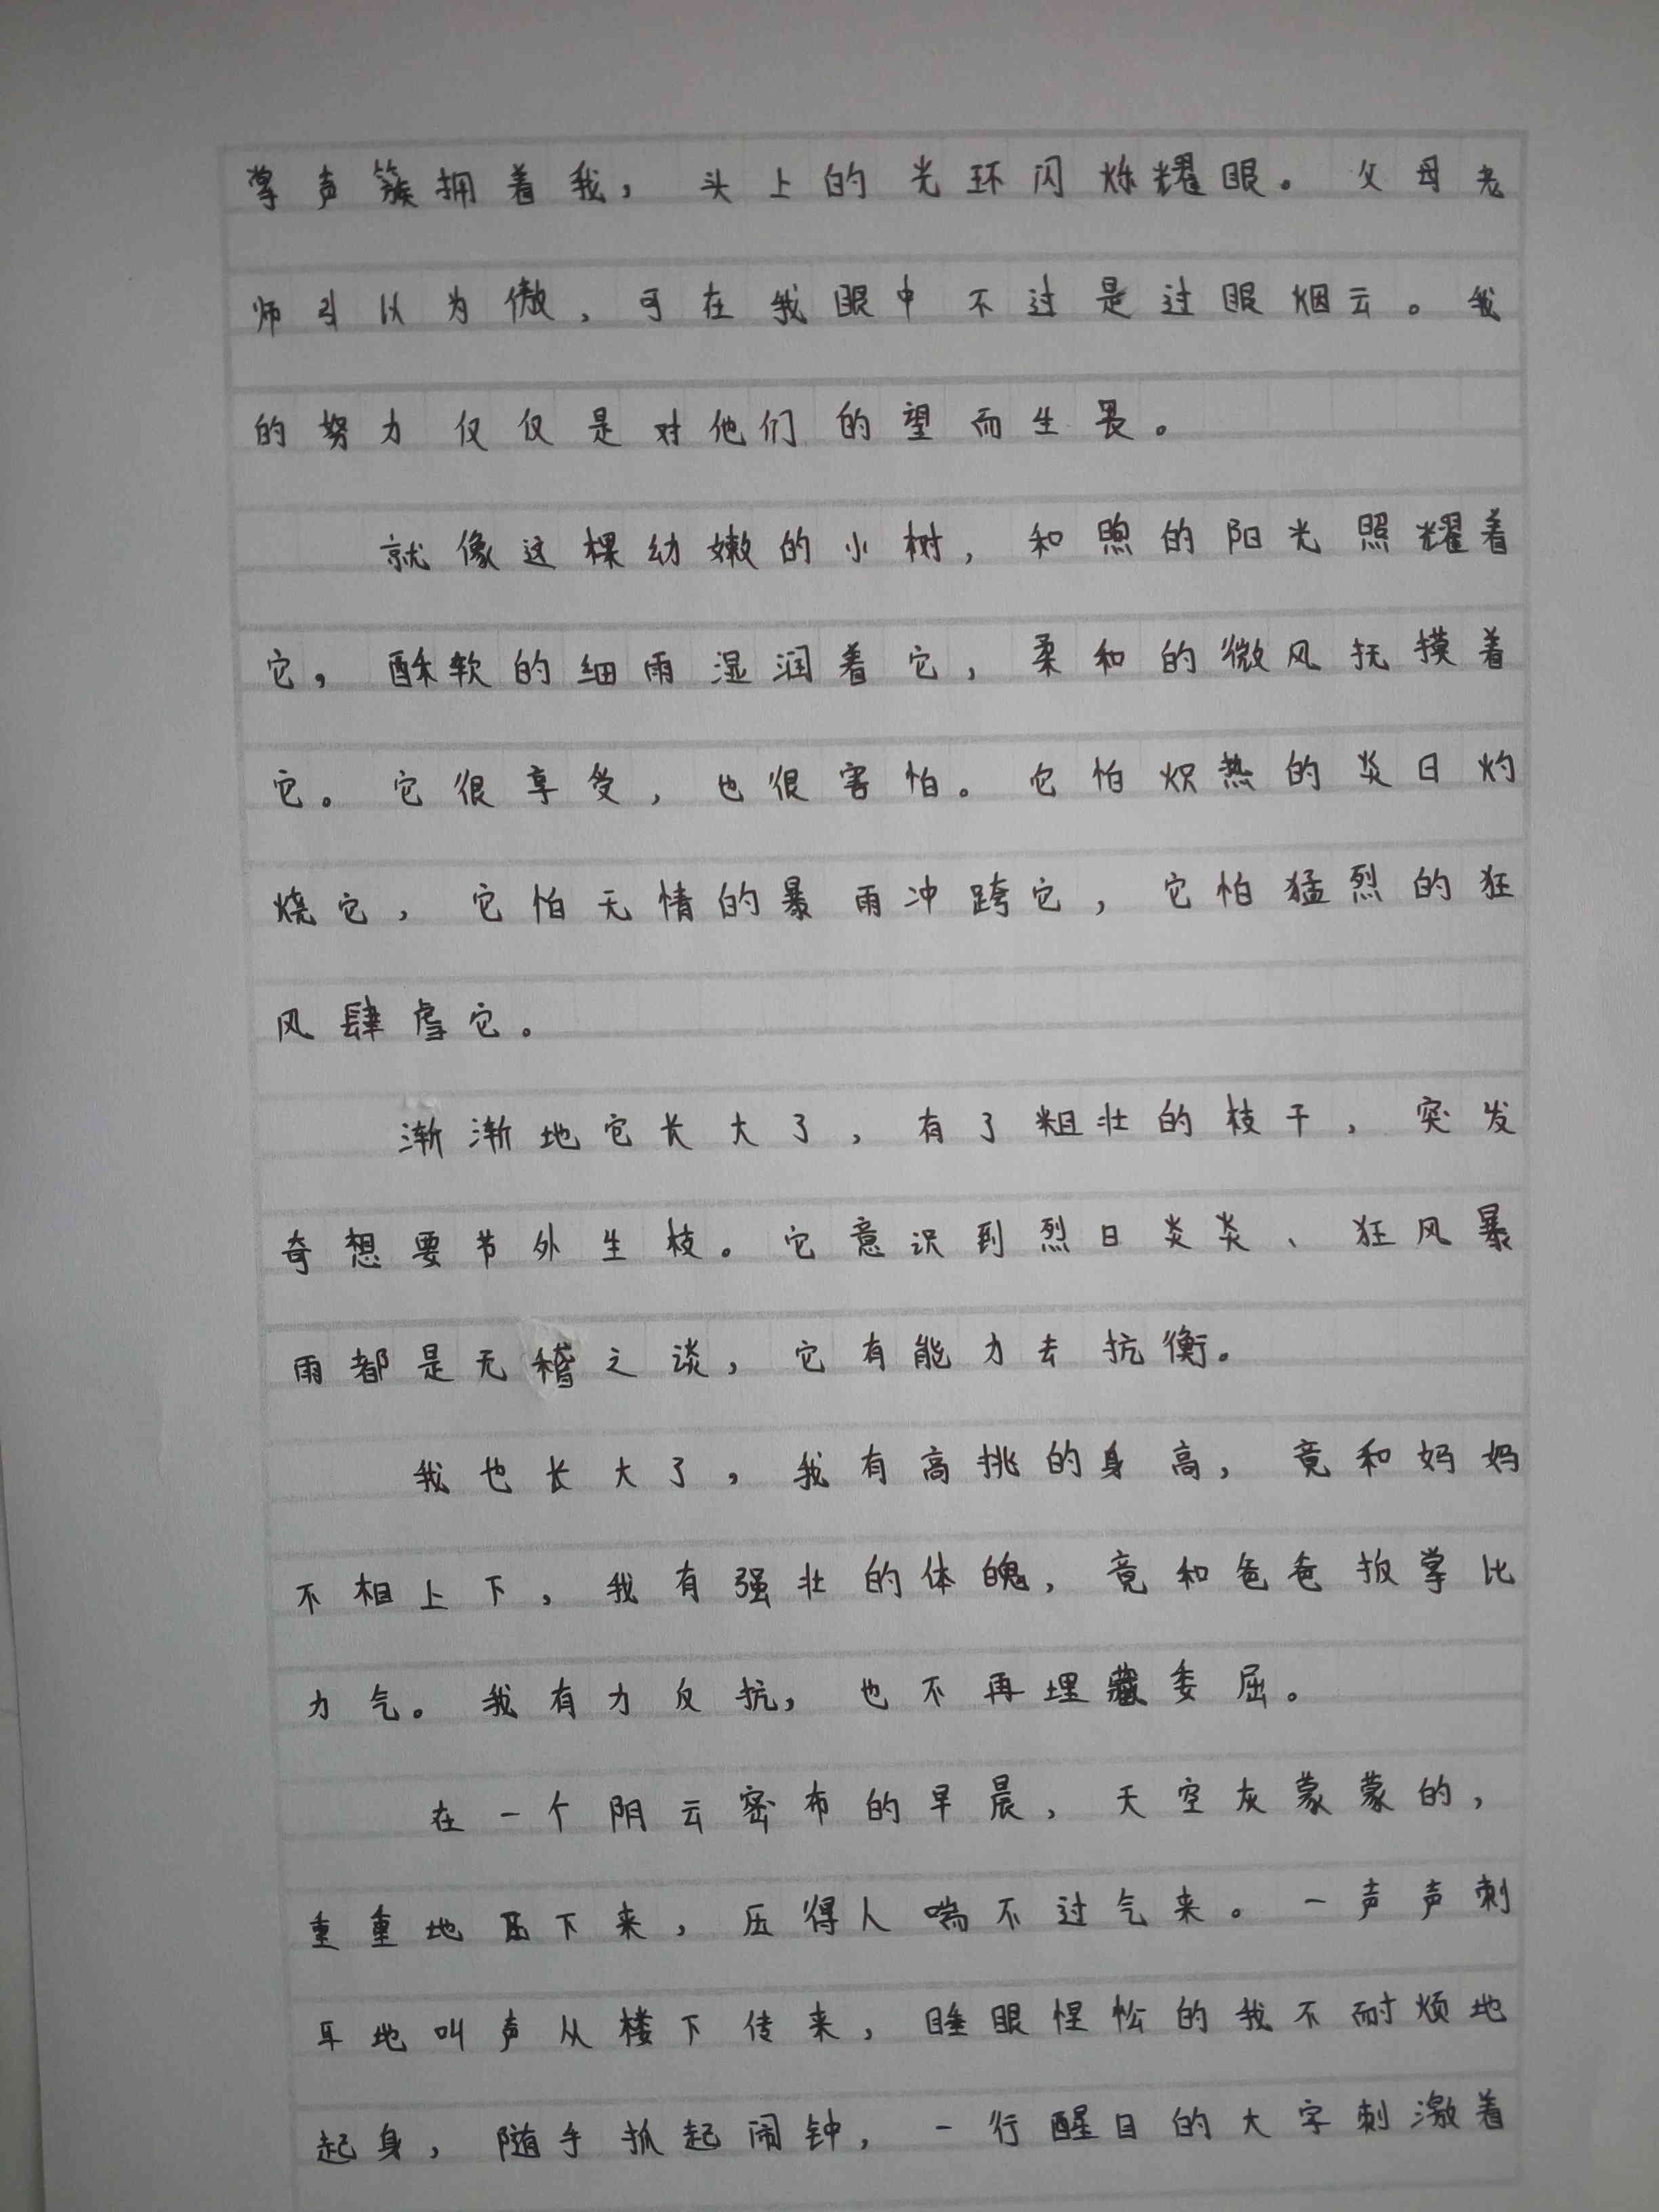 掌声簇拥着我，头上的光环闪烁耀眼。父母老
师引以为傲，可在我眼中不过是过眼烟云。我
的努力仅仅是对他们的望而生畏。
就像这棵幼嫩的小树，和煦的阳光照耀着
它，酥软的细雨湿润着它，柔和的微风抚摸着
它。它很享受，也很害怕。它怕炽热的炎日灼
烧它，它怕无情的暴雨冲跨它，它怕猛烈的狂
风肆虐它。
渐渐地它长大了，有了粗壮的枝干，突发
奇想要节外生枝。它意识到烈日炎炎、狂风暴
雨都是无稽之谈，它有能力去抗衡。
我也长大了，我有高挑的身高，竟和妈妈
不相上下，我有强壮的体魄，竟和爸爸扳掌比
力气。我有力反抗，也不再埋藏委屈。
在一个阴云密布的早晨，天空灰蒙蒙的，
重重地压下来，压得人喘不过气来。一声声刺
耳地叫声从楼下传来，睡眼惺忪的我不耐烦地
起身，随手抓起闹钟，一行醒目的大字刺激着